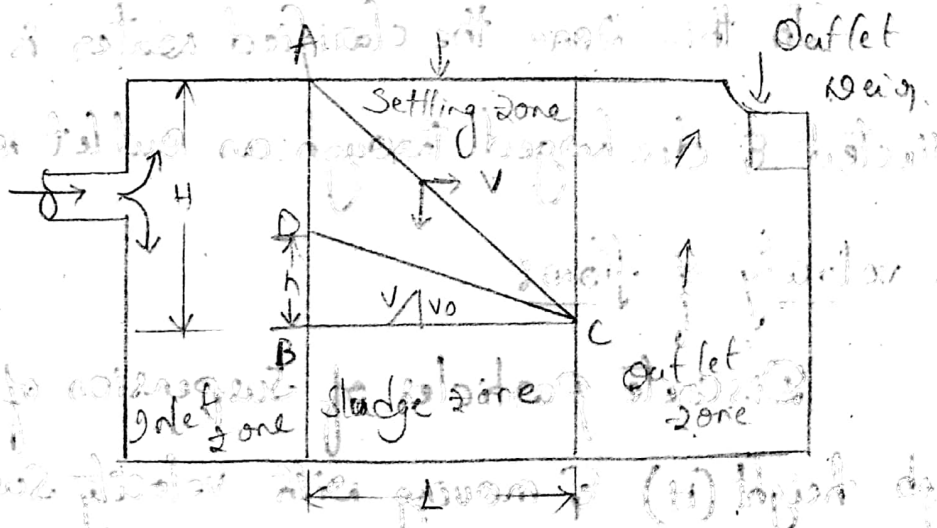 A
Outlet
Weir
Settling zone
H
V
D
h
V
V0
B
C
Inlet zone
Sludge zone
Outlet
zone
L